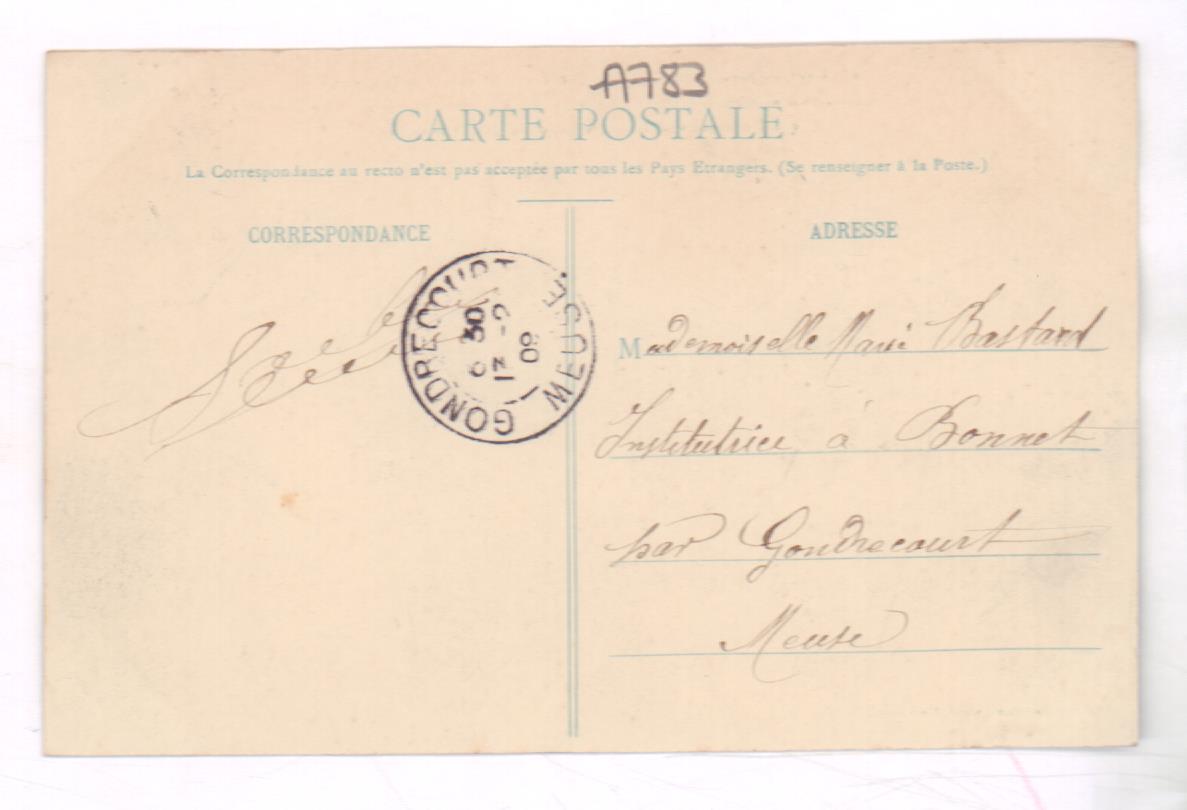 A783
CARTE POSTALE
La Correspondance au recto n'est pas acceptée par tous les Pays Etrangers. (Se renseigner à la Poste.)
CORRESPONDANCE
ADRESSE
GONDRECOURT MEUSE
30
09
Mademoiselle Marie Bastard
Institutrice à Bonnet
par Gondrecourt
Meuse